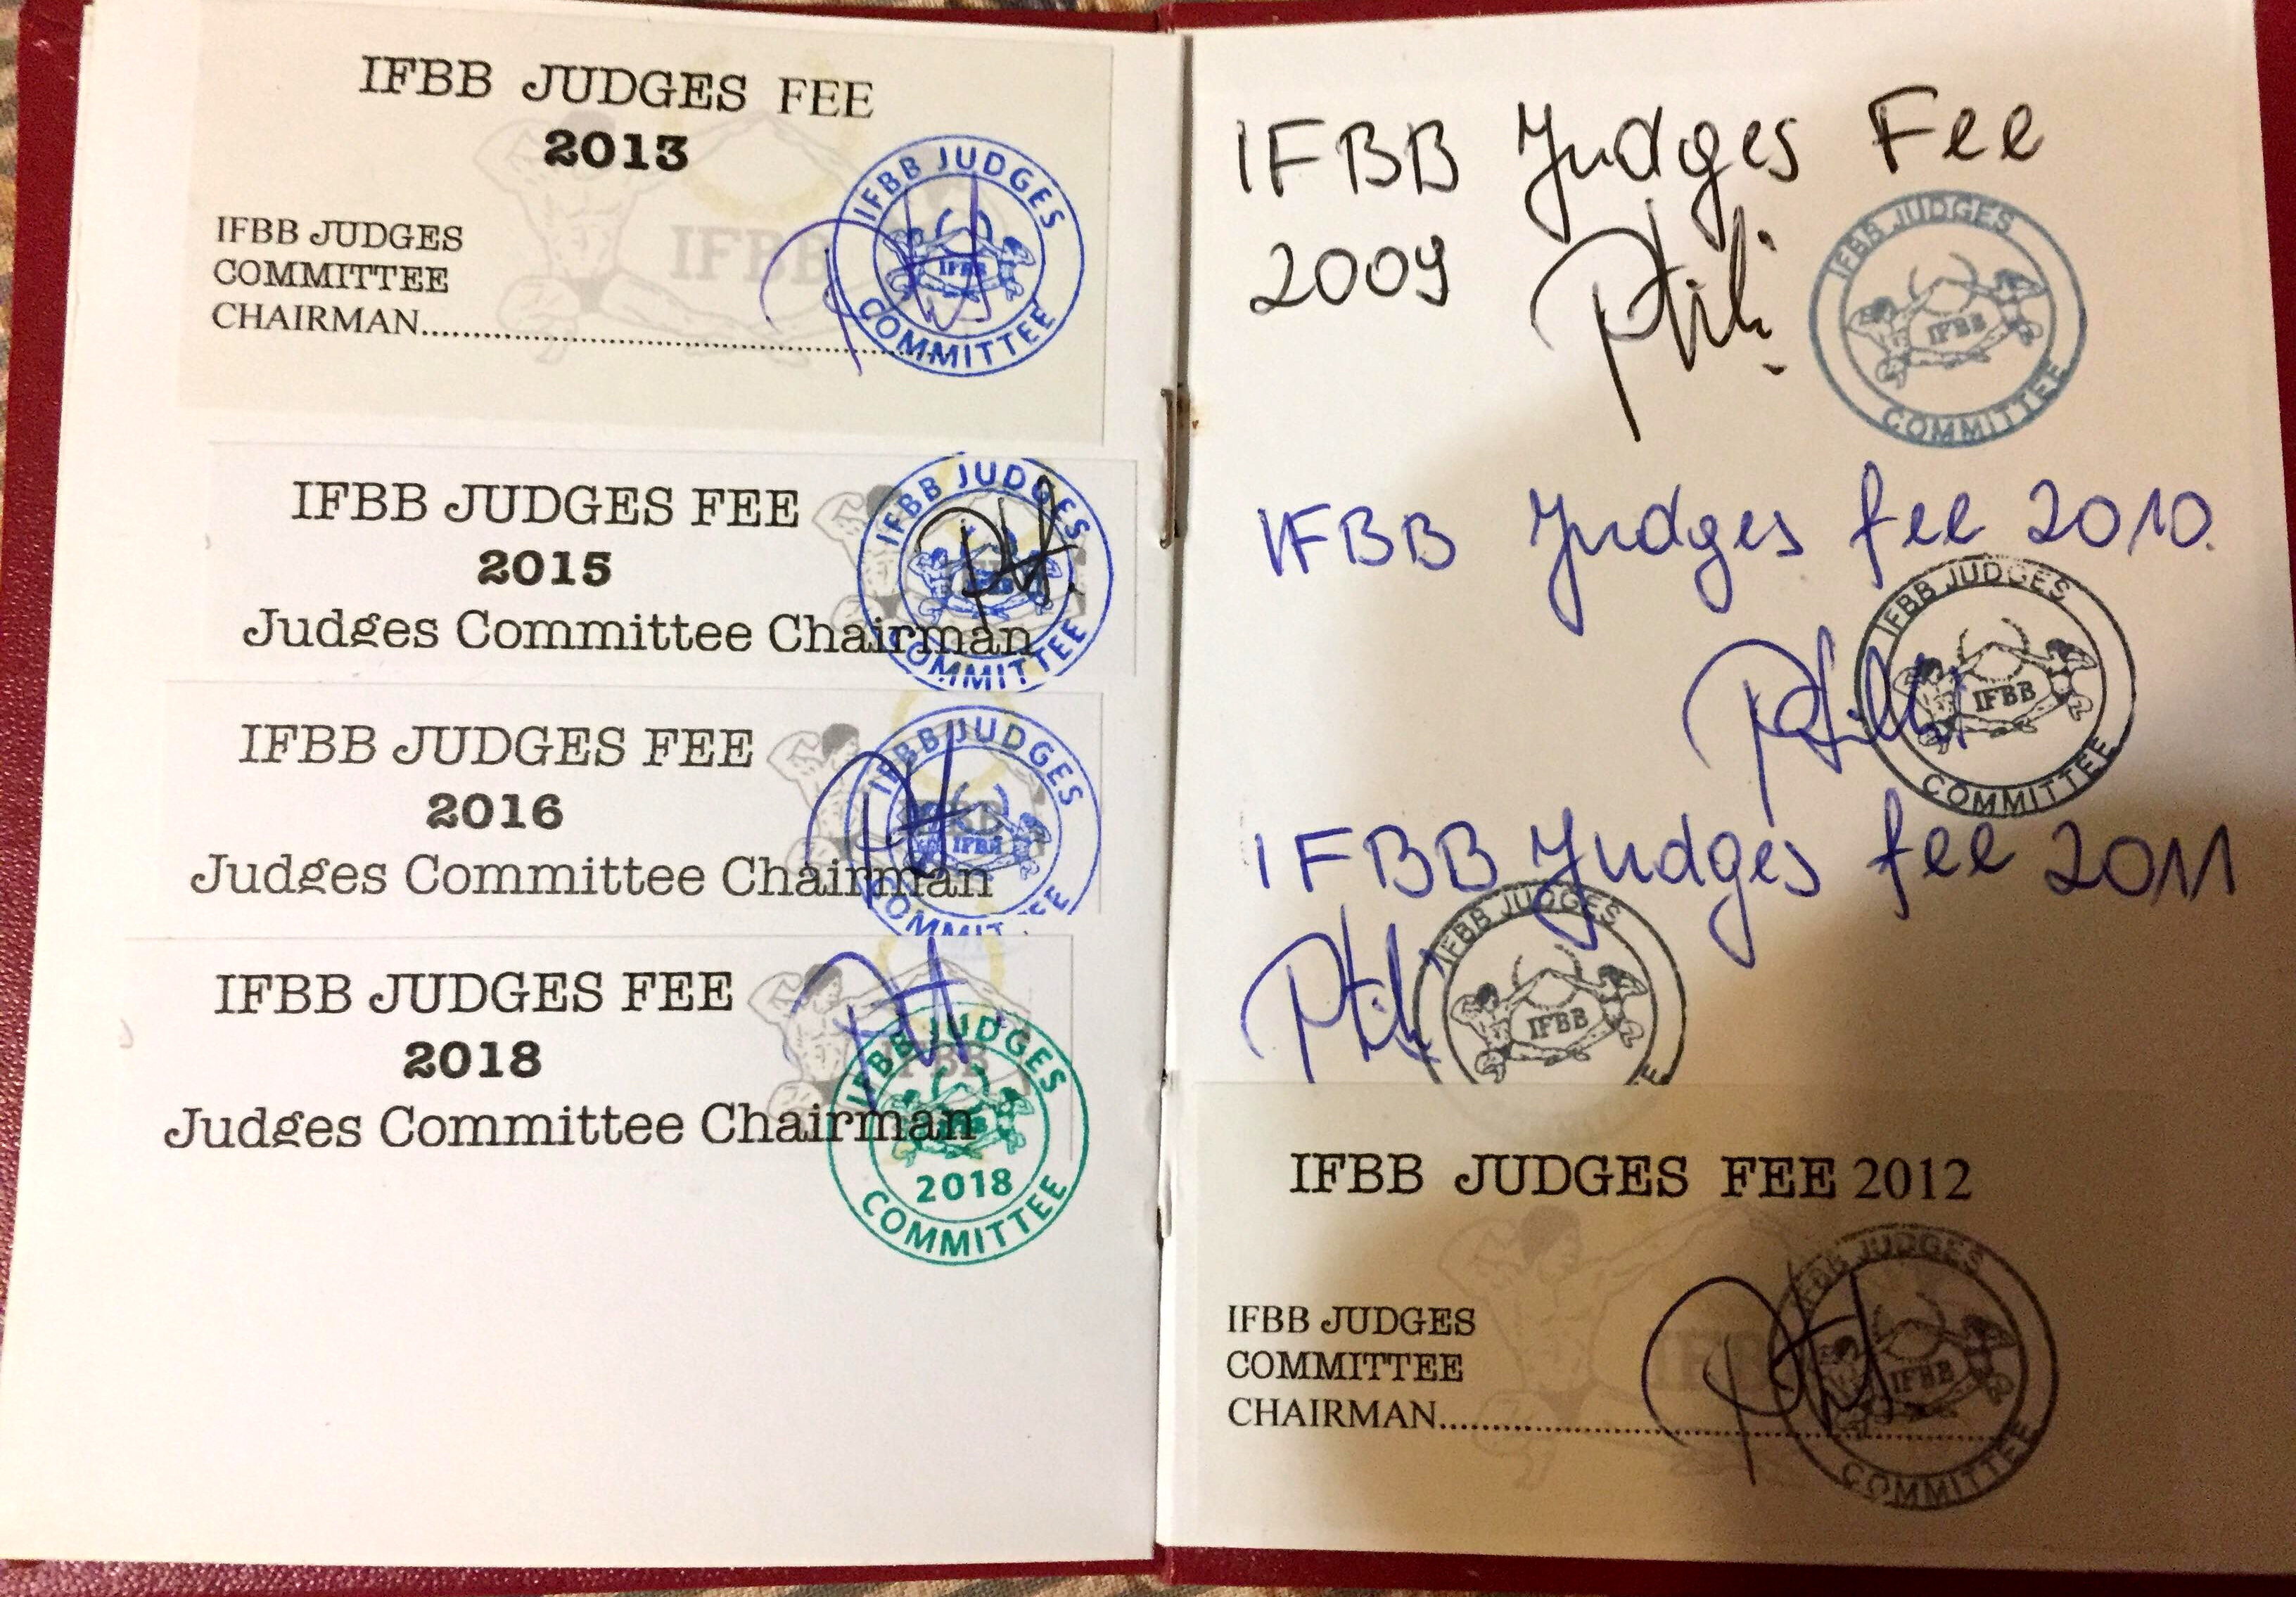 IFBB JUDGES FEE
2013
IFBB JUDGES
COMMITTEE
CHAIRMAN
IFBB JUDGES
IFBB
COMMITTEE
IFBB
IFBB JUDGES FEE
2015
Judges Committee Chairman
IFBB JUDGES
COMMITTEE
IFBB JUDGES FEE
2016
Judges Committee Chairman
IFBB JUDGES
IFBB
IFBB JUDGES FEE
2018
Judges Committee Chairman
IFBB JUDGES
2018
COMMITTEE
IFBB Judges Fee
2009
IFBB JUDGES
IFBB
COMMITTEE
IFBB Judges fee 2010.
IFBB JUDGES
IFBB
COMMITTEE
IFBB Judges fee 2011
IFBB JUDGES
IFBB
IFBB JUDGES FEE 2012
IFBB JUDGES
COMMITTEE
CHAIRMAN
IFBB JUDGES
IFBB
COMMITTEE